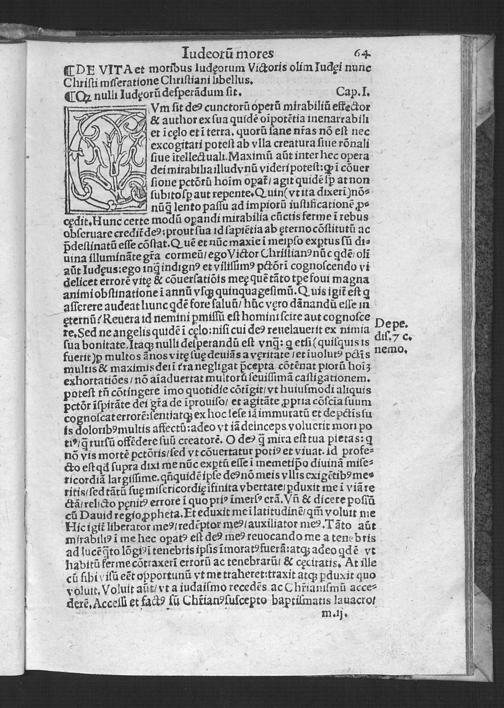 Iudeorũ mores 64
¶DE VITA et moribus Iudęorum Victoris olim Iudęi nunc
Christi miseratione Christiani libellus.
¶Qꝫ nulli Iudęorũ desperãdum sit. Cap.I.
CVm sit deꝰ cunctorũ operũ mirabiliũ effector
& author ex sua quidẽ oĩpotẽtia inenarrabili
et ĩ cęlo et ĩ terra. quorũ sane nr̃as nõ est nec
excogitari potest ab vlla creatura siue rõnali
siue ĩtellectuali. Maximũ aũt inter hec opera
dei mirabilia illudvnũ videri potest: ꝙ ĩ cõuer
sione pctõrũ hoĩm opat̃/ agit quidẽ sp̃ at non
subito sp̃ aut repente. Quin (vt ita dixeri) nõ-
nũꝗ̃ lento passu ad impiorũ iustificationẽ ꝓ-
cędit. Hunc certe modũ opandi mirabilia cũctis ferme ĩ rebus
obseruare credit̃ deꝰ: prout sua id sapiẽtia ab ęterno cõstitutũ ac
p̃destinatũ esse cõstat. Quẽ et nũc maxie ĩ meipso exptus sũ di-
uina illuminãte gr̃a cormeũ/ ego Victor Christianꝰ nũc qdẽ/ olĩ
aũt Iudęus: ego inq̃ indignꝰ et vilissimꝰ pctõr ĩ cognoscendo vi
delicet errorẽ vitę & cõuersatiõis meę quẽ tãto tp̃e foui magna
animi obstinatione ĩ annũ vsq̃ quinquagesimũ. Quis igit̃ est q
asserere audeat hunc qdẽ fore saluũ/ hũc ṽero dãnandũ esse in
ęternũ/ Reuera id nemini pmissũ est homini scire aut cognosce
re. Sed ne angelis quidẽ ĩ cęlo: nisi cui deꝰ reuelauerit ex nimia
sua bonitate. Itaq̃ nulli desperandũ est vnq̃: q etsi (quisquis is
fuerit) p multos ãnos vitę suę deuiãs a ṽeritate/ et ĩuolutꝰ pctĩs
multis & maximis dei ĩ fra negligat p̃cepta cõtẽnat piorũ hoĩꝫ
exhortatiões/ nõ aĩaduertat multorũ seuissimã castigationem.
potest tñ cõtingere ĩmo quotidie cõtĩgit/ vt huiusmodi aliquis
pctõr ĩspirãte dei gr̃a de ĩprouiso/ et agitãte ꝓpria cõsciã suum
cognoscat errorẽ: sentiatq̃ ex hoc sese iã immutatũ et de pctĩs su
is doloribꝰ multis affectũ: adeo vt iã deinceps voluerit mori po
tiꝰ/ q̃ rursũ offẽdere suũ creatorẽ. O deꝰ q̃ mira est tua pietas: q
nõ vis mortẽ pctõris/ sed vt cõuertatur potiꝰ et viuat. id profe-
cto est qd supra dixi me nũc exptũ esse ĩ memetiꝑo diuinã mise-
ricordiã largissime. qñquidẽ ipse deꝰ nõ meis vllis exigẽtibꝰ me-
ritis/ sed tãtũ suę misericordię ĩfinita vbertate/ pduxit me ĩ viã re
ctã/ relicto pẽnitꝰ errore ĩ quo priꝰ ĩmersꝰ erã. Vñ & dicere possũ
cũ Dauid regio ꝓpheta. Et eduxit me ĩ latitudinẽ/ qm̃ voluit me
Hic igit̃ liberator meꝰ/ redẽptor meꝰ/ auxiliator meꝰ. Tãto aũt
mirabiliꝰ ĩ me hoc opatꝰ est deꝰ meꝰ reuocando me a tenebris
ad lucẽ q̃to lõgiꝰ ĩ tenebris ipsus ĩmoratꝰ fuerã: atq̃ adeo qdẽ vt
habitũ ferme cõtraxerĩ erroũ ac tenebrarũ/ & cęcitatis. At ille
cũ sibi visũ eẽt opportunũ vt me traheret: traxit atq̃ pduxit quo
voluit. Voluit aũt/ vt a iudaismo recedẽs ac Chr̃ianismũ acce-
derẽ. Accessi et factꝰ sũ Chr̃ianꝰ suscepto baptismatis lauacro/
De pe.
dis.7 c.
nemo.
m.ij.